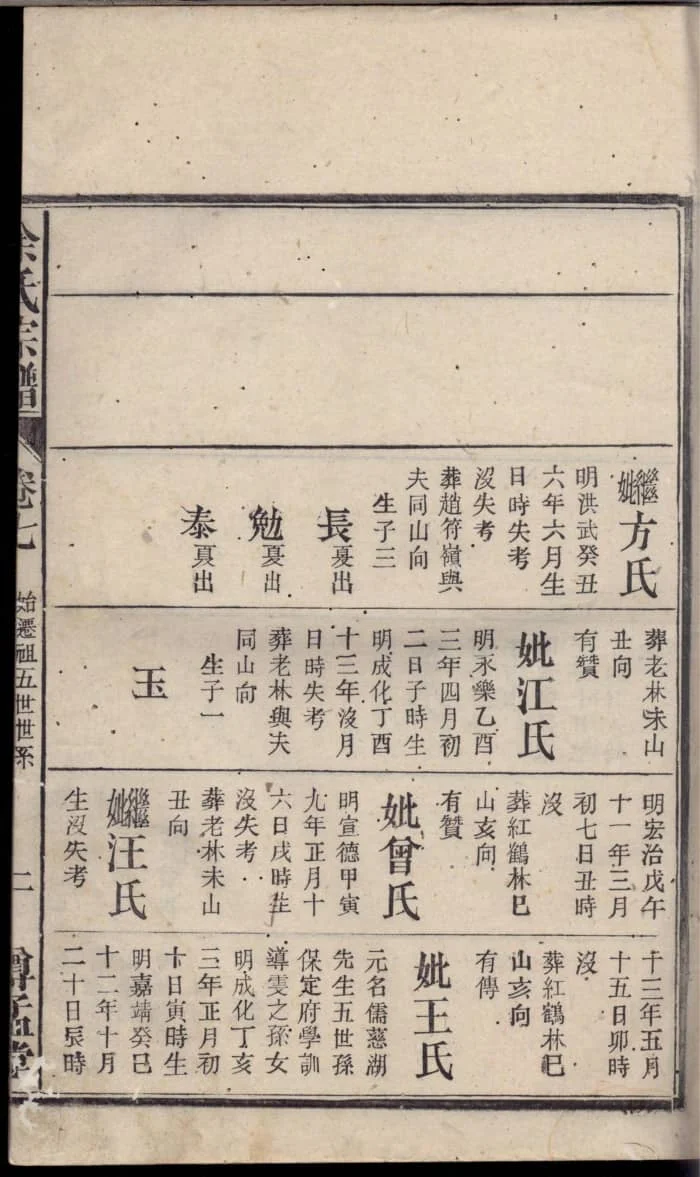 繼妣方氏
明洪武癸丑
六年六月生
日時失考
沒失考
葬趙符嶺與
夫同山向
生子三
長夏出
勉夏出
泰夏出
葬老林未山
丑向
有贊
妣江氏
明永樂乙酉
三年四月初
二日子時生
明成化丁酉
十三年沒月
日時失考
葬老林與夫
同山向
生子一
玉
明宏治戊午
十一年三月
初七日丑時
沒
葬紅鶴林巳
山亥向
有贊
妣曾氏
明宣德甲寅
九年正月十
六日戌時生
沒失考
葬老林未山
丑向
繼妣汪氏
生沒失考
十三年五月
十五日卯時
沒
葬紅鶴林巳
山亥向
有傳
妣王氏
元名儒慈湖
先生五世孫
保定府學訓
導雯之孫女
明成化丁亥
三年正月初
十日寅時生
明嘉靖癸巳
十二年十月
二十日辰時
余氏宗譜
卷七
始遷祖五世世系
二